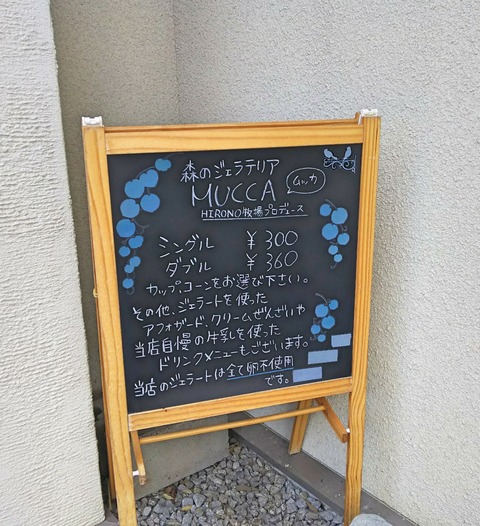 森のジェラテリア
MUCCA ムッカ
HIRONO牧場プロデュース
シングル ¥300
ダブル ¥360
カップ、コーンをお選び下さい。
その他、ジェラートを使った
アフォガード、クリームぜんざいや
当店自慢の牛乳を使った
ドリンクメニューもございます。
当店のジェラートは全て卵不使用
です。